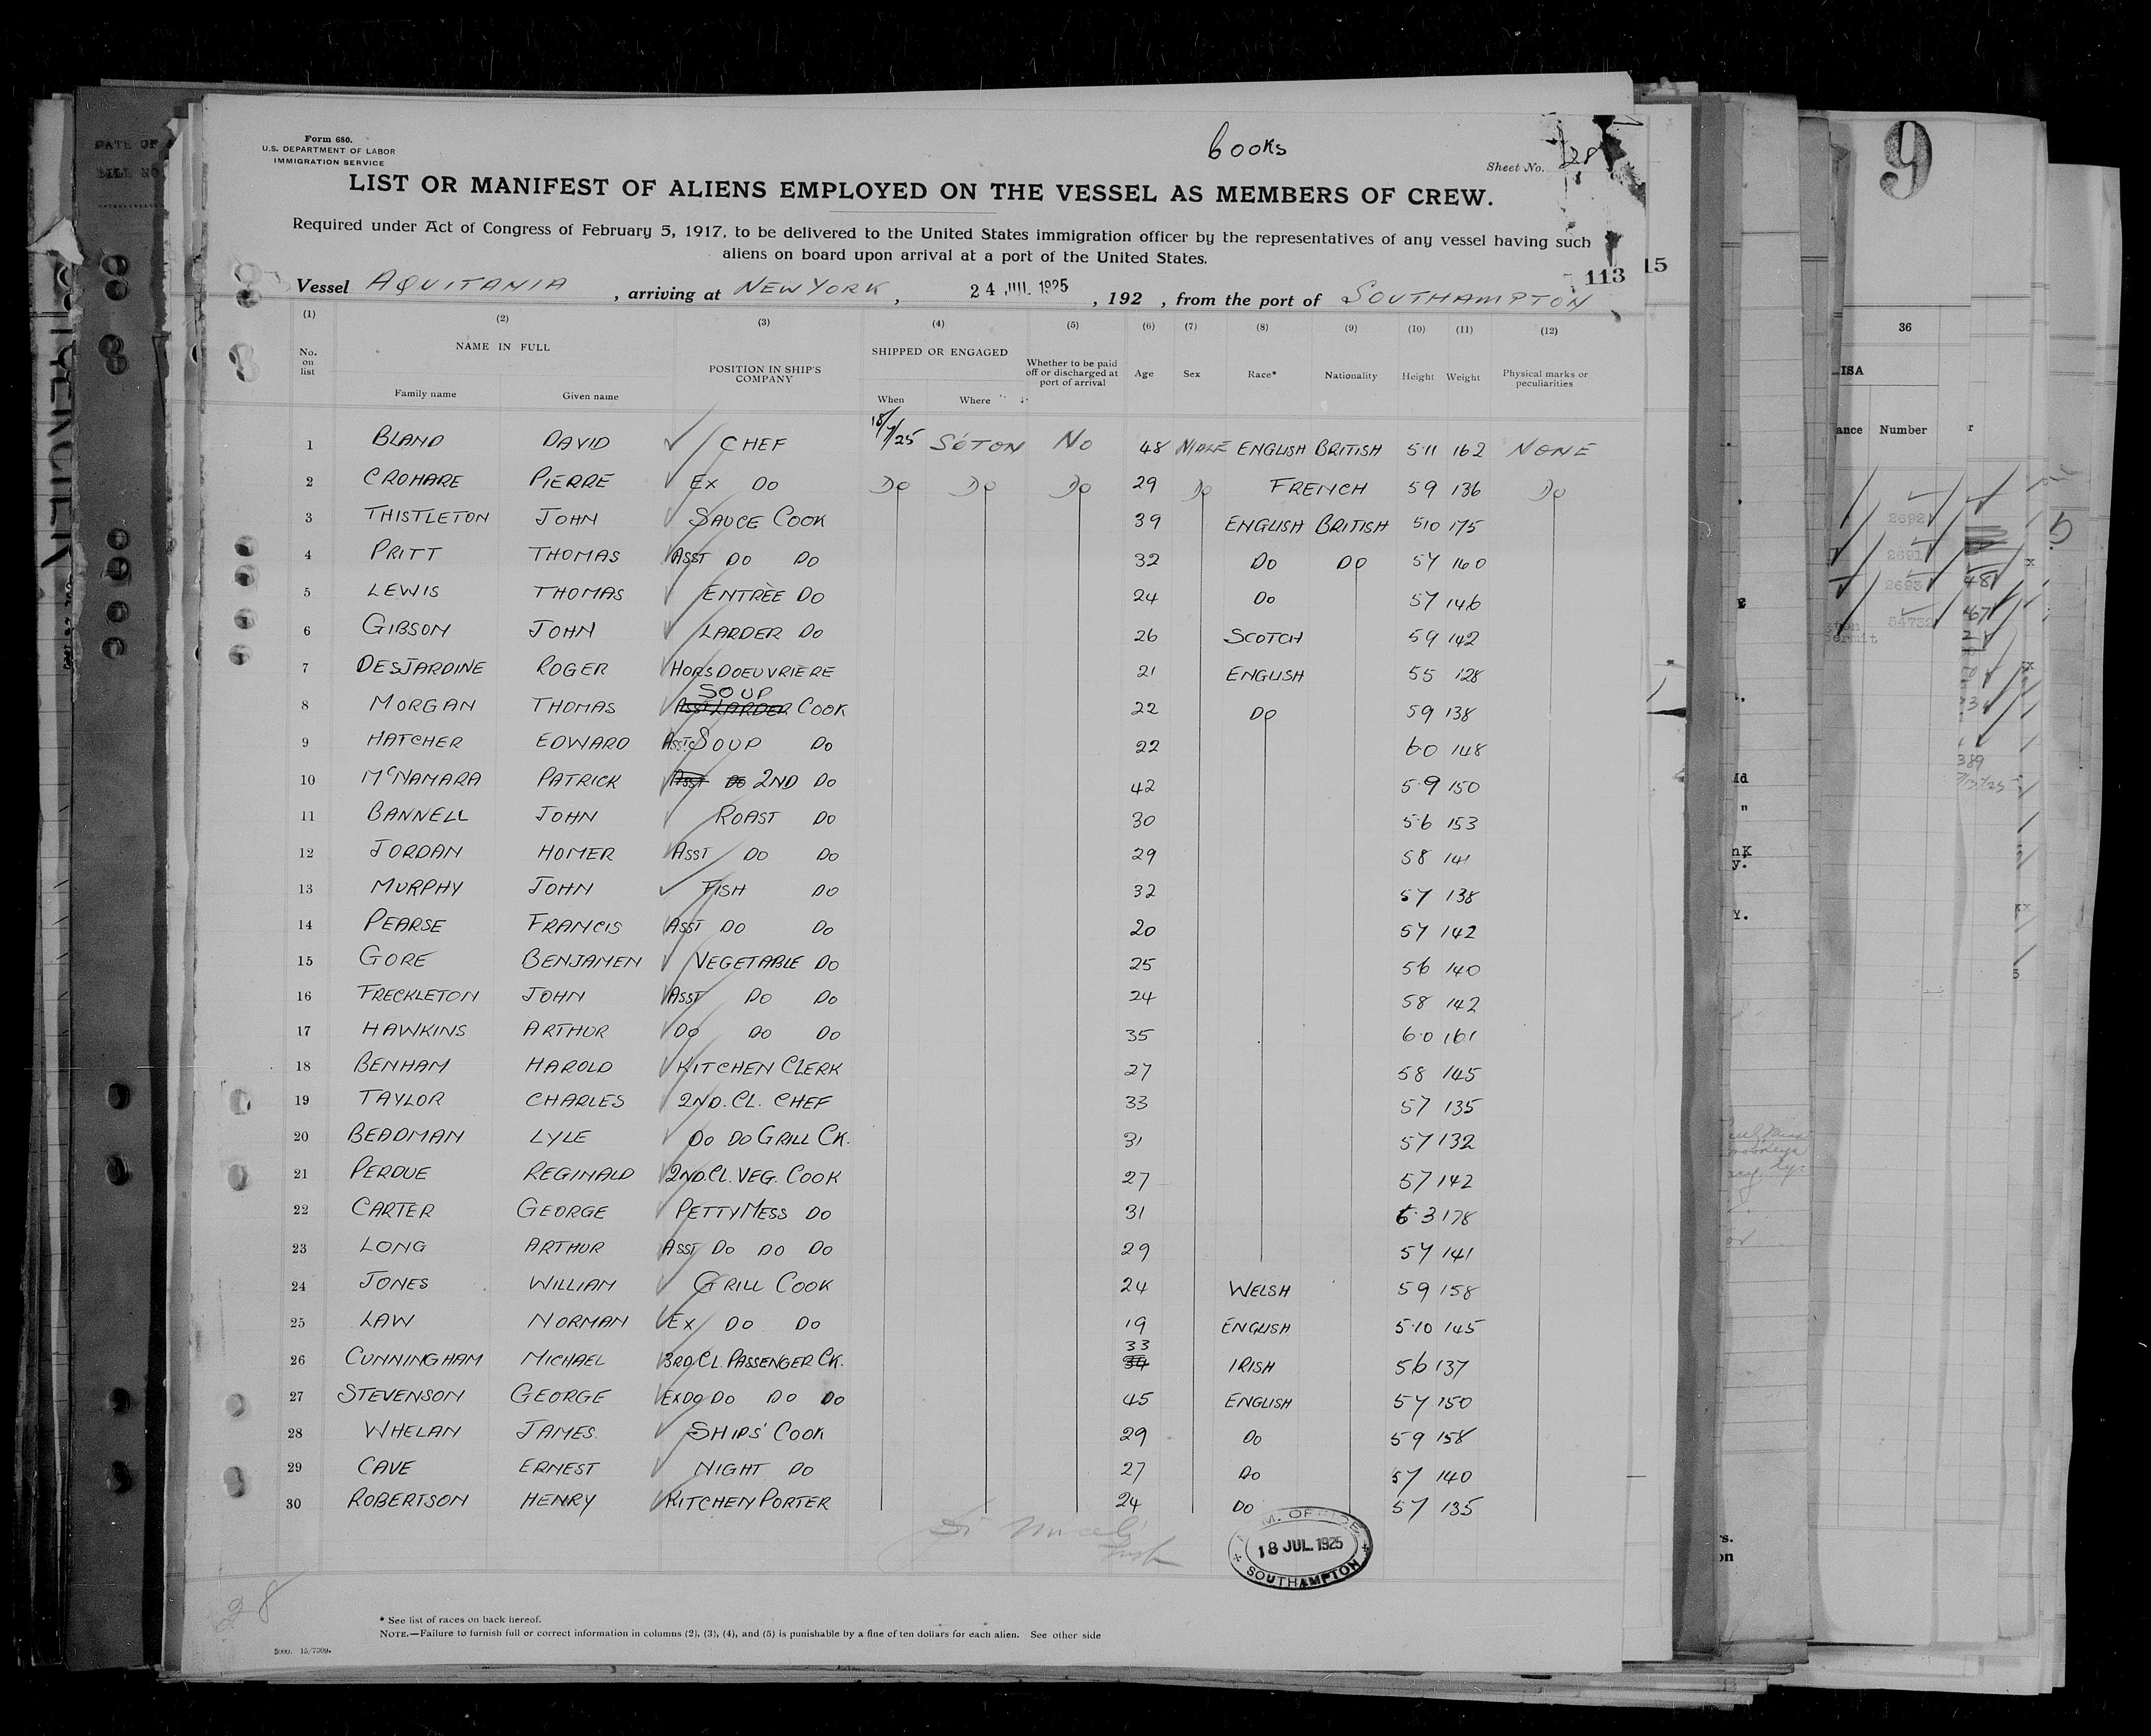 Form 680.
U.S. DEPARTMENT OF LABOR
IMMIGRATION SERVICE
Cooks
Sheet No. 28
LIST OR MANIFEST OF ALIENS EMPLOYED ON THE VESSEL AS MEMBERS OF CREW.
Required under Act of Congress of February 5, 1917, to be delivered to the United States immigration officer by the representatives of any vessel having such
aliens on board upon arrival at a port of the United States.
113 15
Vessel AQUITANIA, arriving at NEW YORK, 24 JUL 1925, 192 , from the port of SOUTHAMPTON
(1) (2) (3) (4) (5) (6) (7) (8) (9) (10) (11) (12)
No. on list NAME IN FULL Family name Given name POSITION IN SHIP'S COMPANY SHIPPED OR ENGAGED When Where Whether to be paid off or discharged at port of arrival Age Sex Race* Nationality Height Weight Physical marks or peculiarities
1 BLAND DAVID CHEF 18/7/25 SÓTON NO 48 MALE ENGLISH BRITISH 5·11 162 NONE
2 CROHARE PIERRE EX DO DO DO DO 29 DO FRENCH 59 136 DO
3 THISTLETON JOHN SAUCE COOK 39 ENGLISH BRITISH 510 175
4 PRITT THOMAS ASST DO DO 32 DO DO 57 160
5 LEWIS THOMAS ENTRÈE DO 24 DO 57 146
6 GIBSON JOHN LARDER DO 26 SCOTCH 59 142
7 DESJARDINE ROGER HORS DOEUVRIERE 21 ENGLISH 55 128
8 MORGAN THOMAS SOUP ASST LARDER COOK 22 DO 59 138
9 HATCHER EDWARD ASST SOUP DO 22 6·0 148
10 McNAMARA PATRICK ASST DO 2ND DO 42 5·9 150
11 BANNELL JOHN ROAST DO 30 5·6 153
12 JORDAN HOMER ASST DO DO 29 58 141
13 MURPHY JOHN FISH DO 32 57 138
14 PEARSE FRANCIS ASST DO DO 20 57 142
15 GORE BENJAMEN VEGETABLE DO 25 56 140
16 FRECKLETON JOHN ASST DO DO 24 58 142
17 HAWKINS ARTHUR DO DO DO 35 6·0 161
18 BENHAM HAROLD KITCHEN CLERK 27 58 145
19 TAYLOR CHARLES 2ND. CL. CHEF 33 57 135
20 BEADMAN LYLE DO DO GRILL CK. 31 57 132
21 PERDUE REGINALD 2ND. CL. VEG. COOK 27 57 142
22 CARTER GEORGE PETTY MESS DO 31 6·3 178
23 LONG ARTHUR ASST DO DO DO 29 57 141
24 JONES WILLIAM GRILL COOK 24 WELSH 59 158
25 LAW NORMAN EX DO DO 19 ENGLISH 5·10 145
26 CUNNINGHAM MICHAEL 3RD CL. PASSENGER CK. 33 34 IRISH 56 137
27 STEVENSON GEORGE EX DO DO DO DO 45 ENGLISH 57 150
28 WHELAN JAMES. SHIPS' COOK 29 DO 59 158
29 CAVE ERNEST NIGHT DO 27 DO 57 140
30 ROBERTSON HENRY KITCHEN PORTER 24 DO 57 135
18 JUL. 1925
SOUTHAMPTON
28
* See list of races on back hereof.
NOTE.—Failure to furnish full or correct information in columns (2), (3), (4), and (5) is punishable by a fine of ten dollars for each alien. See other side
5000. 15/7309.
DATE OF
BILL NO
9
36
ISA
ance Number
2692
2691
2693
54732